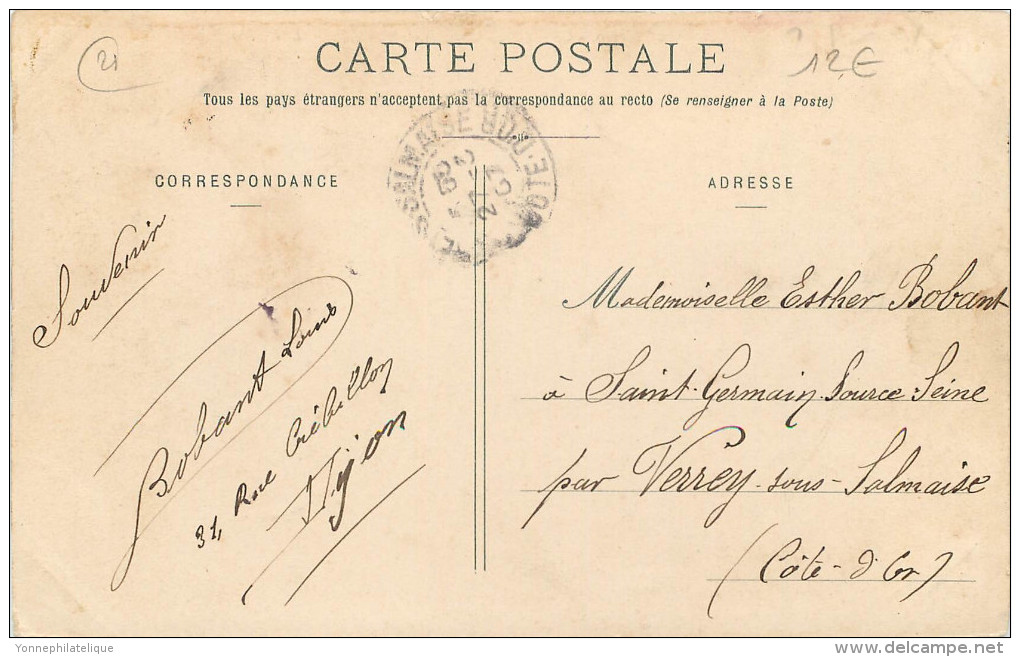 21
CARTE POSTALE
12,€
Tous les pays étrangers n'acceptent pas la correspondance au recto (Se renseigner à la Poste)
CORRESPONDANCE
Souvenir
Bobant Louis
31, Rue Crébillon
Dijon
ADRESSE
Mademoiselle Esther Bobant
à Saint-Germain-Source-Seine
par Verrey-sous-Salmaise
(Côte-d'Or)
SALMAISE CÔTE-D'OR
Yonnephilatelique
delcampe.net